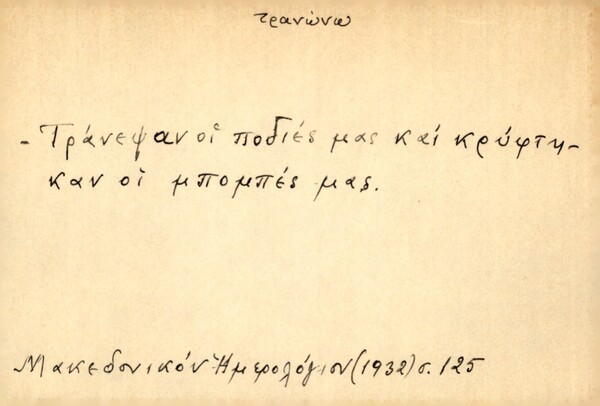 τρανώνω
- Τράνεψαν οἱ ποδιές μας καί κρύφτη-
καν οἱ μπομπές μας.
Μακεδονικόν Ἡμερολόγιον (1932) σ. 125